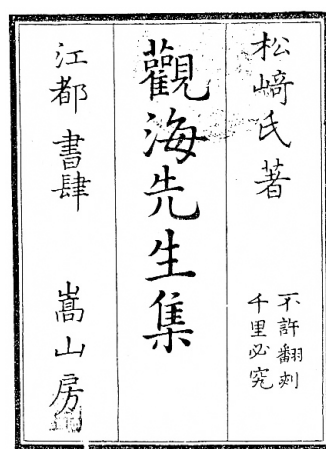 松﨑氏著
不許翻刻
千里必究
觀海先生集
江都書肆
嵩山房